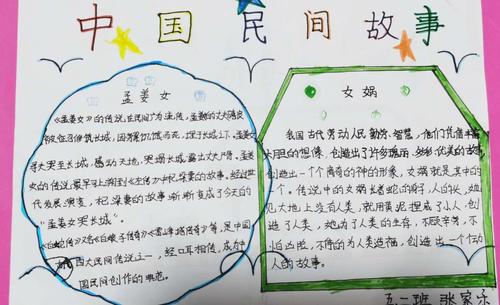 中国民间故事
孟姜女
《孟姜女》的传说,在民间广为流传,孟姜女的丈夫范
被征召修筑长城,因劳累饥饿而死,埋于长城下,孟姜
寻夫哭至长城,感动天地,哭塌长城,露出丈夫尸骨。孟姜
女的传说最早可上溯到《左传》中杞梁妻的故事,经过世
代发展,演变,杞梁妻的故事渐渐变成了今天的
“孟姜女哭长城”。
《白蛇传》又名《白娘子传奇》《雷峰塔传奇》等,是中国
四大民间传说之一,经口耳相传,成为中
国民间创作的典范。
女娲
我国古代劳动人民勤劳、智慧,他们凭借丰富
大胆的想像,创造出了许多瑰丽、多彩、优美的故事
创造出一个个离奇的神的形象,女娲就是其中的
一个。传说中的女娲长着蛇的身,人的头,她
见大地上没有人类,就用黄泥捏成了小人,创
造了人类,她为了人类的生存,不顾辛劳,不
怕凶险,不停的为人类造福,创造出一个个动
人的故事。
五二班 张家